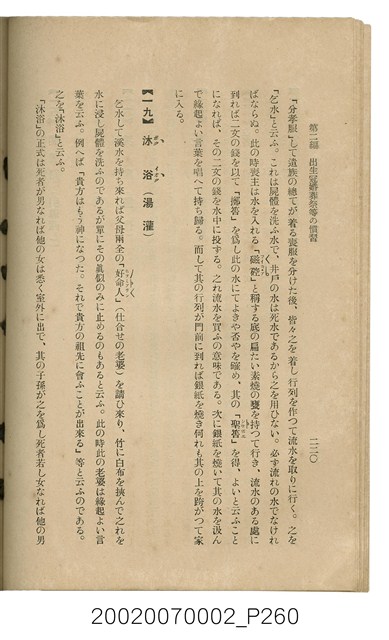 第二編　出生冠婚葬祭等の慣習
二二〇
「分孝服」して遺族の總てが着る喪服を分けた後、皆々之を着し行列を作つて流水を取りに行く。之を
「乞水」と云ふ。これは屍體を洗ふ水で、井戸の水は死水であるから之を用ひない。必ず流れの水でなけれ
ばならぬ。此の時喪主は水を入れる「磁䃂」と稱する底の扁たい素燒の甕を持つて行き、流水のある處に
到れば二文の錢を以て「擲筶」を爲し此の水にてよきや否やを確め、其の「聖筶」を得、よいと云ふこと
になれば、その二文の錢を水中に投する。之れ流水を買ふの意味である。次に銀紙を燒いて其の水を汲ん
で緣起よい言葉を唱へて持ち歸る。而して其の行列が門前に到れば銀紙を燒き何れも其の上を跨がつて家
に入る。
【一九】　沐浴（湯灌）
乞水して溪水を持ち來れば父母兩全の「好命人」（仕合せの老婆）を請ひ來り、竹に白布を挾んで之れを
水に浸し屍體を洗ふのであるが單にその眞似のみに止めるのもあると云ふ。此の時此の老婆は緣起よい言
葉を云ふ。例へば「貴方はもう神になつた。それで貴方の祖先に會ふことが出來る」等と云ふのである。
之を「沐浴」と云ふ。
「沐浴」の正式は死者が男なれば他の女は悉く室外に出で、其の子孫が之を爲し死者若し女なれば他の男
20020070002_P260